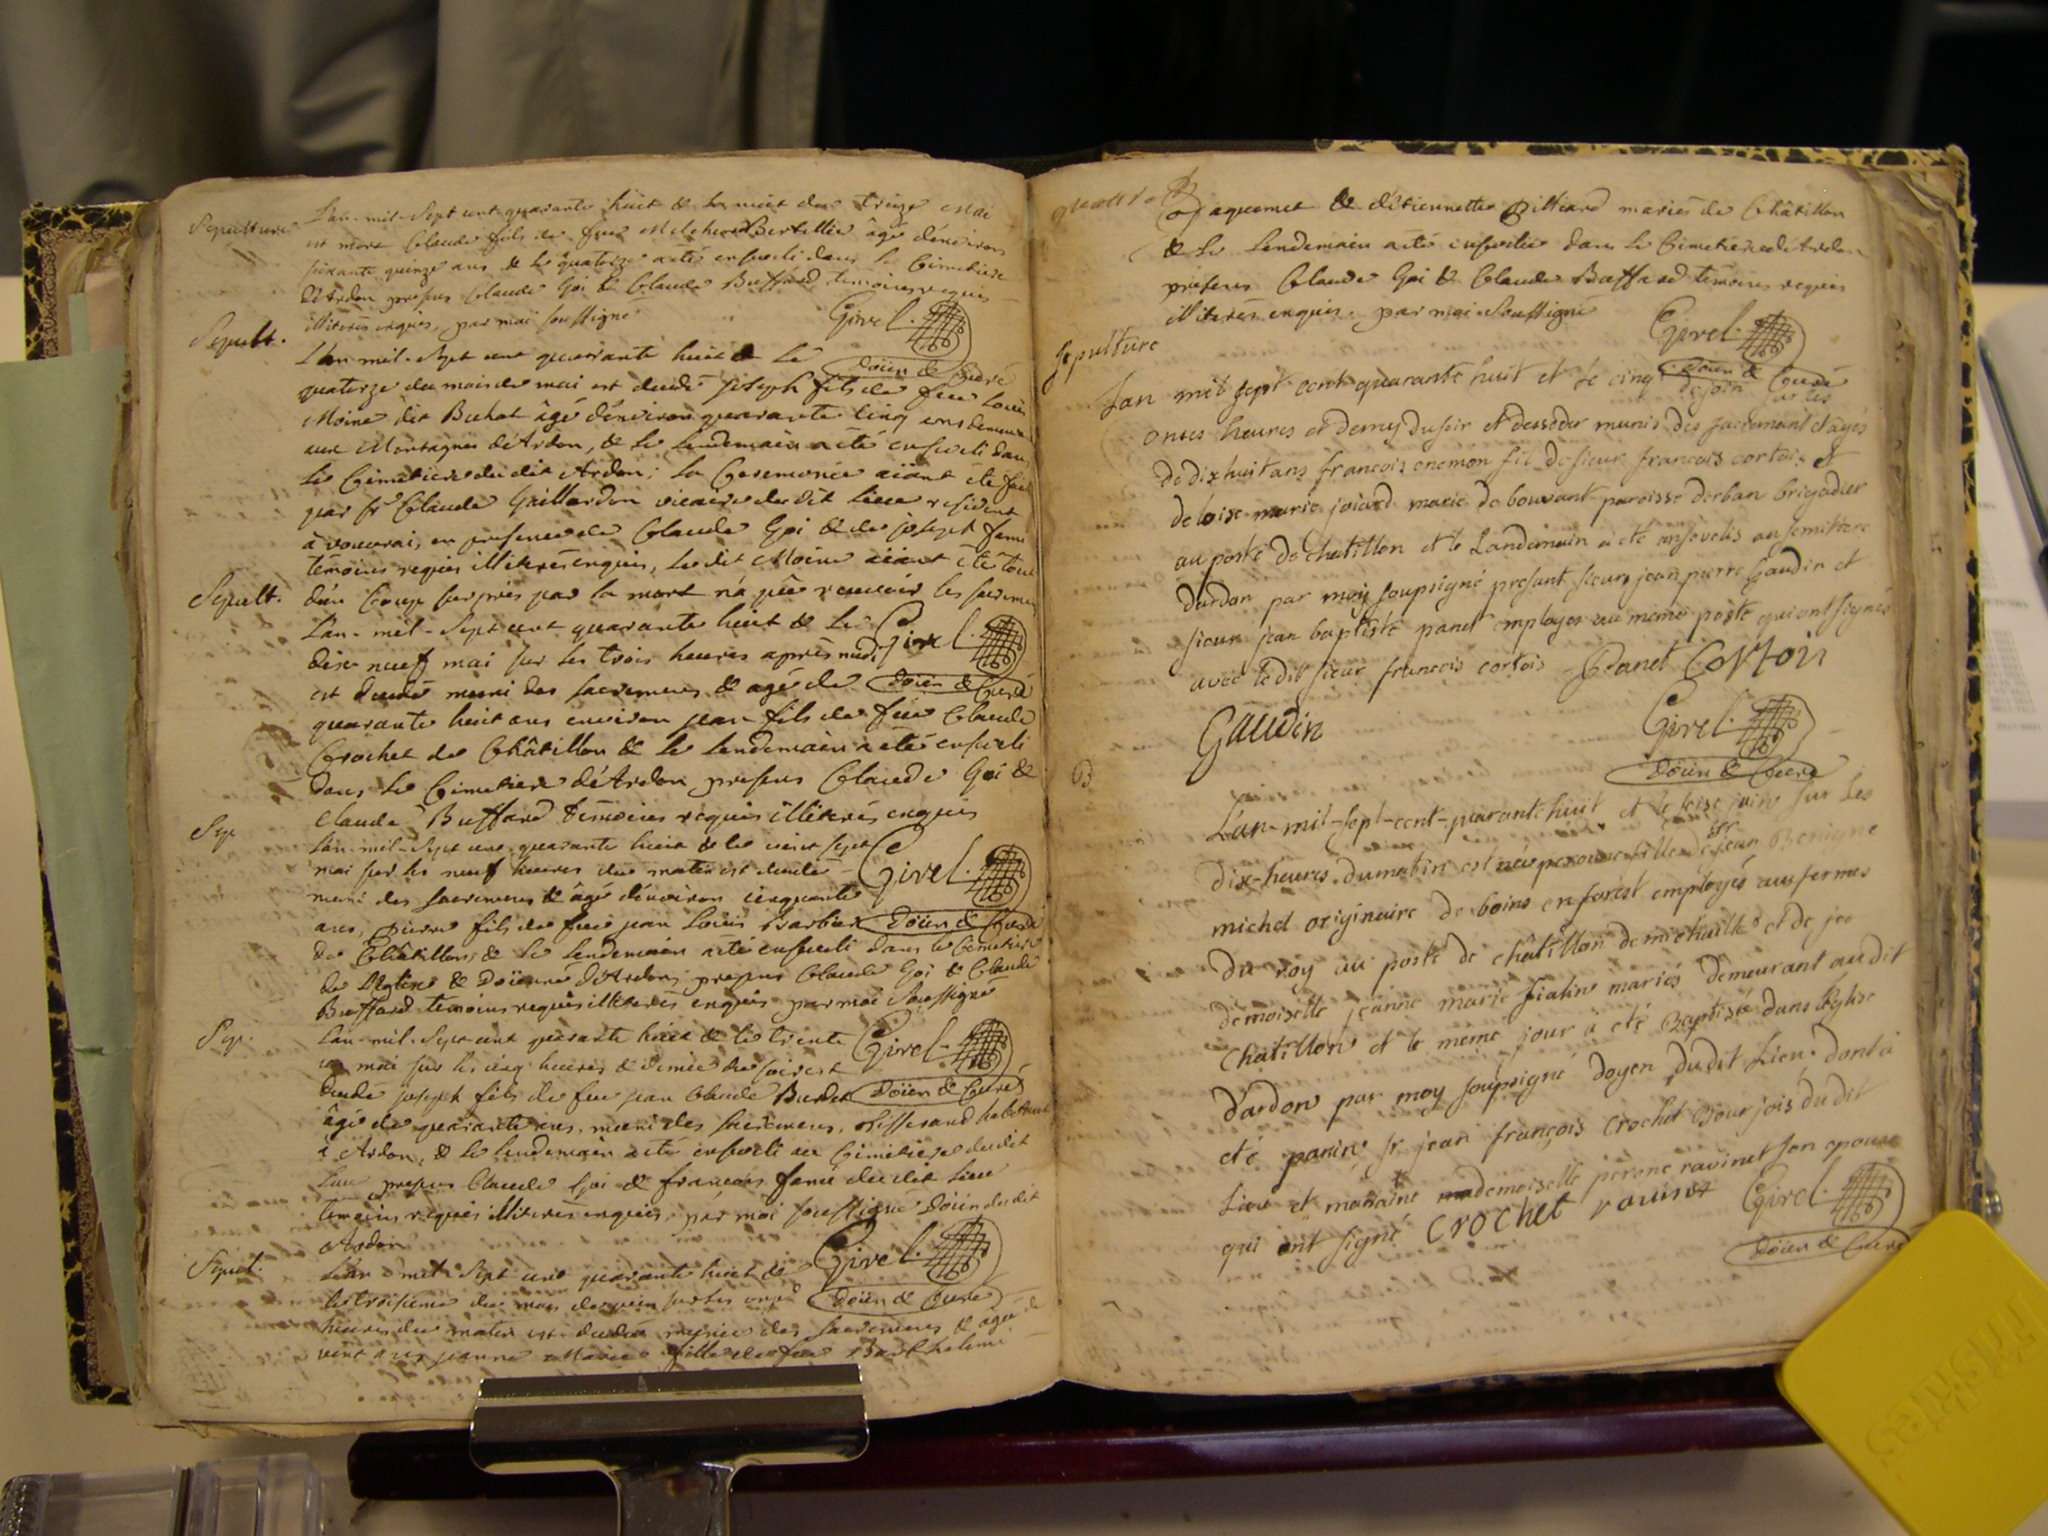 Sepulture
L'an-mil-sept cent quarante huit & la nuit du treize mai
est mort Claude fils de feu Melchior Bertillie âgé d'environ
soixante quinze ans & le quatorze a eté enseveli dans le Cimetiere
d'Ardon presens Claude Goi & Claude Buffard temoins requis
illiterés enquis, par moi soussigné
Girel.
Doïen & Curé
Sepult.
L'an mil-sept cent quarante huit & le
quatorze du mois de mai est decedé joseph fils de feu Louis
Moine dit Buhat âgé d'environ quarante cinq ans demeurant
aux Montagnes d'Ardon, & le lendemain a eté enseveli dans
le Cimetiere du dit Ardon; la Ceremonie aïant eté faite
par Sr Claude Gaillardon vicaire du dit lieu resident
à vouvrai, en presence de Claude Goi & de joseph fame
temoins requis illiterés enquis, le dit Moine aïant été tout
d'un Coup surpris par la mort n'a pû recevoir les sacremens
Girel.
Doïen & Curé
Sepult.
L'an-mil-sept cent quarante huit & le
dix neuf mai sur les trois heures après midi
est decedé muni des sacremens & agé de
quarante huit ans environ jean fils de feu Claude
Crochet de Châtillon & le lendemain a eté enseveli
dans le Cimetiere d'Ardon presens Claude Goi &
Claude Buffard temoins requis illiterés enquis
Girel.
Doïen & Curé
Sep.
L'an-mil-sept cent quarante huit & le vint sept
mai sur les neuf heures du matin est decedé
muni des sacremens & âgé d'environ cinquante
ans, pierre fils de feu jean Louis Barbier
de Châtillon, & le lendemain a eté enseveli dans le Cimetiere
de l'Eglise & Doïenné d'Ardon, presens Claude Goi & Claude
Buffard temoins requis illiterés enquis par moi soussigné
Girel.
Doïen & Curé
Sep.
L'an-mil-sept cent quarante huit & le trente
un mai sur les cinq heures & demie du soir est
decedé joseph fils de feu jean Claude Burdet
âgé de quarante ans, muni des sacremens, Tisserand habitant
à Ardon, & le lendemain a eté enseveli au Cimetiere du dit
Lieu presens Claude Goi & françois fame du dit Lieu
temoins requis illiterés enquis, par moi soussigné Doïen du dit
Ardon
Girel.
Doïen & Curé
Sepul.
L'an-mil-sept cent quarante huit &
le troisieme du mois de juin sur les onze
heures du matin est decedée munie des sacremens & agée de
vint ans jeanne Marie fille de feu Barthelemi
jaquemet & d'étiennette Billiard mariés de Châtillon
& le lendemain a eté ensevelie dans le Cimetiere d'Ardon
presens Claude Goi & Claude Buffard temoins requis
illiterés enquis. par moi soussigné
Girel.
Doïen & Curé
Sepulture
Lan mil sept cent quarante huit et le cinq de join sur les
onses heures et demy du soir et dessedé munis des sacremant et agés
de dix huit ans francois enemon fil de sieur francois cortois et
de loise marie joiard marié de bouvant paroisse derban brigadier
au poste de chatillon et le Landemain a eté ansevelis au semittere
dardon par moy soupsigné presant sieurs jean pierre Gaudin et
sieur jean baptiste panet employes au meme poste qui ont signés
avec le dit sieur francois cortois Panet Cortois
Gaudin
Girel.
Doïen & Curé
B
L'an-mil-sept-cent-quarant huit et le seise juin sur les
dix-heures du matin est née peronne fille de Sr jean Benigne
michel originaire de boins en forest employés aux fermes
du roy au poste de châtillon de michaille et de
demoiselle jeanne marie fialin mariés demeurant au dit
Chatillon et le meme jour a eté Baptisée dans l'église
d'ardon par moy soupsigné doyen du dit Lieu dont a
eté parin Sr jean françois Crochet Bourjois du dit
Lieu et maraine mademoiselle perone ravinet son epouse
qui ont signé Crochet ravinet
Girel.
Doïen & Curé